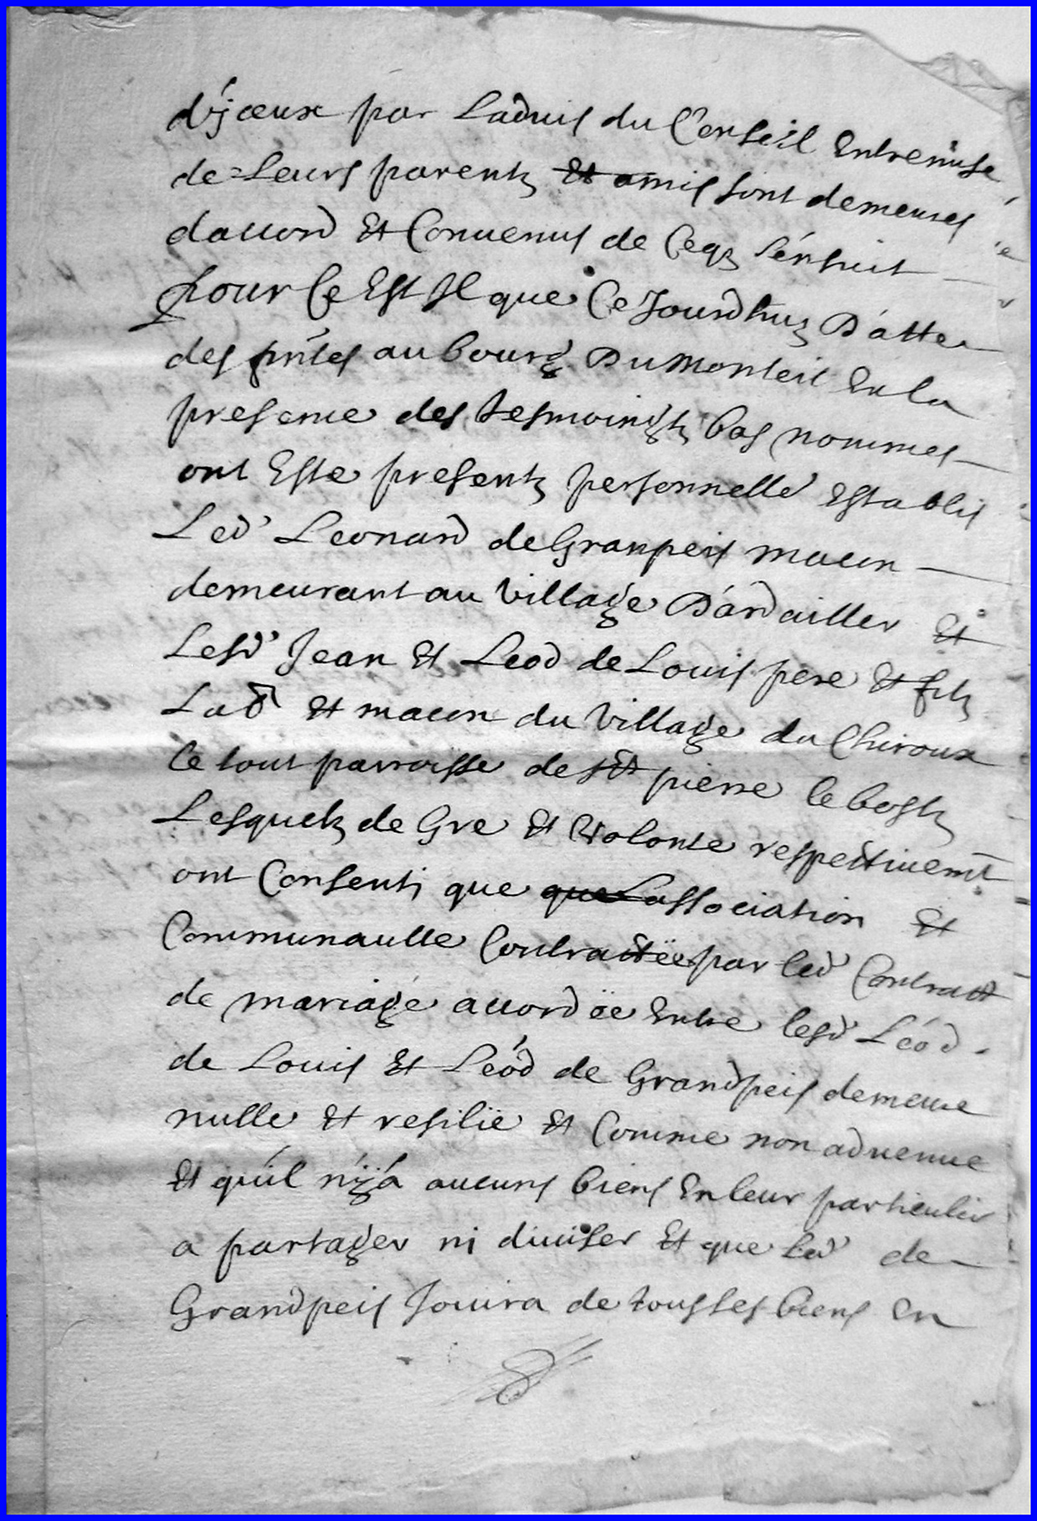 d'jceux par Ladvis du Conseil Entremise
de Leurs parents Et amis sont demeures
dacord Et Convenus de Ceqs sénsuit
Pour Ce Est Il que Ce Jourdhuy Datte
des pntes au bourg Du Monteil En la
presence des tesmoingts bas nommes
ont Este presents personnelle Establis
Led' Leonard de Granpeis macon
demeurant au village Dardailler Et
Lesd' Jean Et Leod de Louis pere Et fils
Labr Et macon du village du Chiroux
le tout parroisse de St pierre le bost
Lesquels de Gre Et Volonte respectivemt
ont Consenti que Lassociation Et
Communautte Contractëe par led' Contract
de mariage accordëe Entre lesd' Léod
de Louis Et Léod de Grandpeis demeure
nulle Et resilïe Et Comme non advenue
Et quil n'ÿ á aucuns biens En leur particulier
a partager ni diviser Et que Led' de
Grandpeis Jouira de tous ses biens En